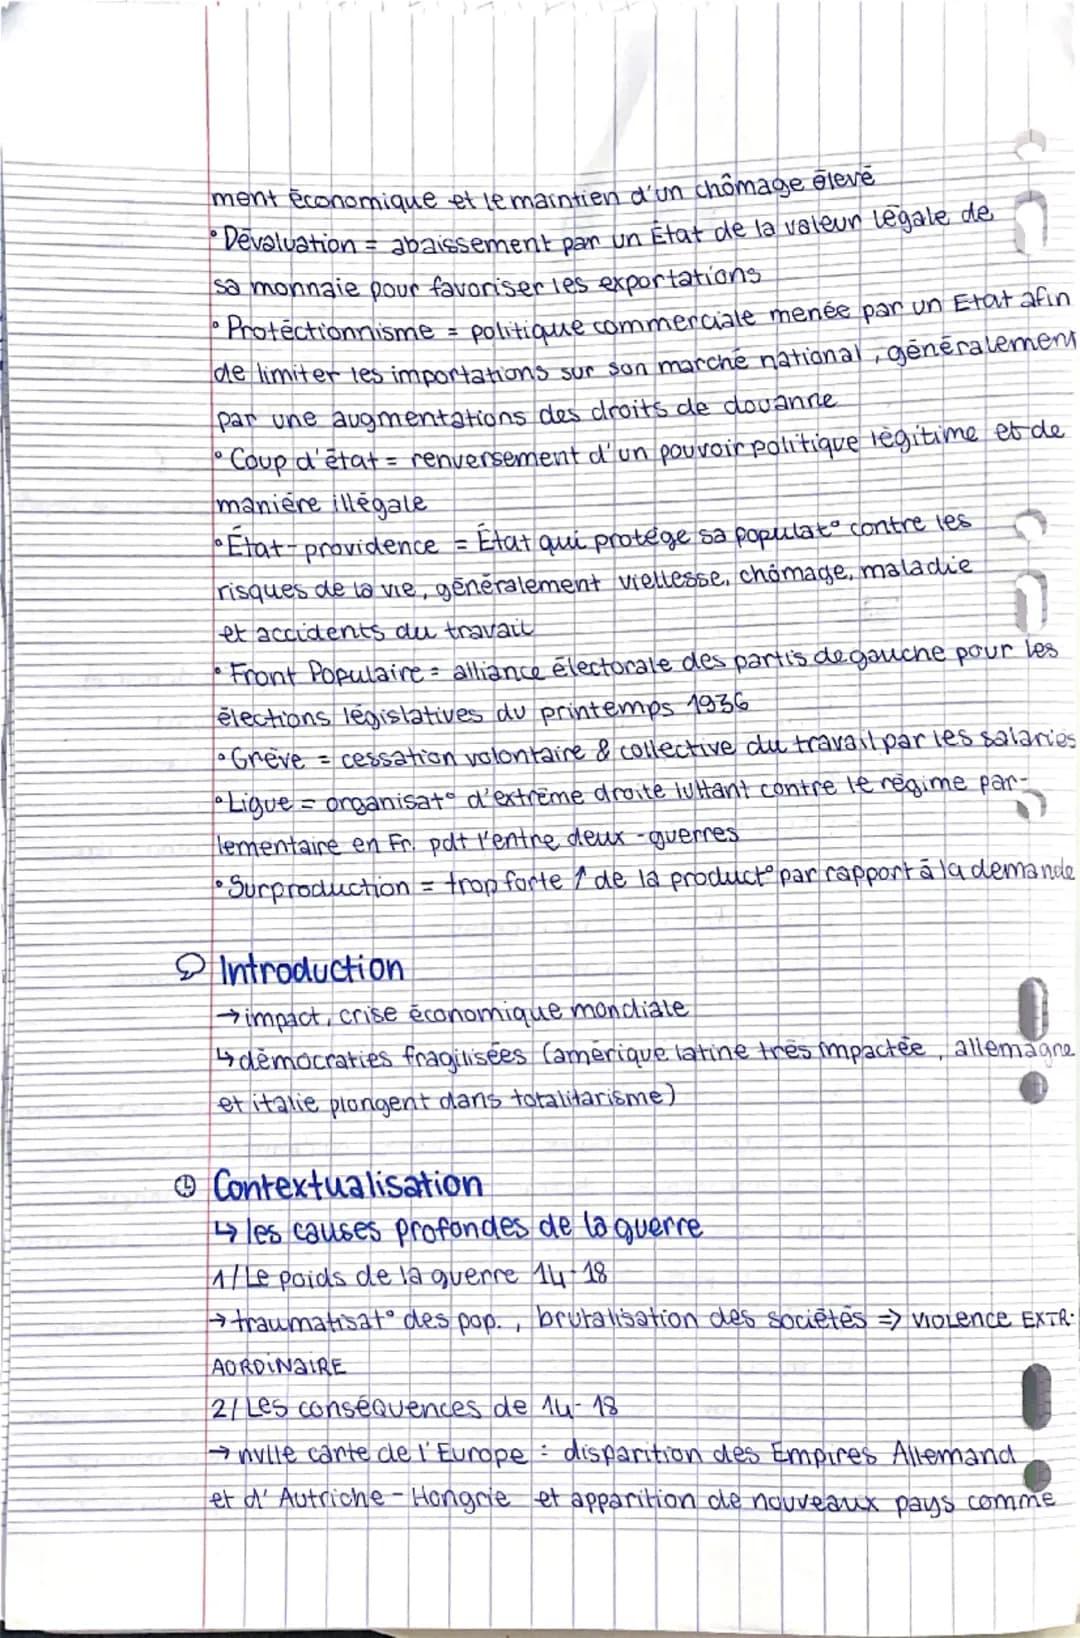 ment économique et le maintien d'un chômage élevé
• Dévaluation = abaissement par un État de la valeur légale de
sa monnaie pour favoriser les exportations
• Protéctionnisme = politique commerciale menée par un Etat afin
de limiter les importations sur son marché national, généralement
par une augmentations des droits de douanne
• Coup d'état = renversement d'un pouvoir politique légitime et de
manière illégale
• État-providence = État qui protège sa populat° contre les
risques de la vie, généralement viellesse, chômage, maladie
et accidents du travail
• Front Populaire = alliance électorale des partis de gauche pour les
élections législatives du printemps 1936
• Grève = cessation volontaire & collective du travail par les salariés
• Ligue = organisat° d'extrême droite luttant contre le régime par-
lementaire en Fr. pdt l'entre deux-guerres
• Surproduction = trop forte ↑ de la product° par rapport à la demande
Introduction
→ impact, crise économique mondiale
↳ démocraties fragilisées (amérique latine très impactée, allemagne
et italie plongent dans totalitarisme)
Contextualisation
↳ les causes profondes de la guerre
1/ Le poids de la guerre 14-18
→ traumatisat° des pop., brutalisation des sociétés => VIOLENCE EXTR-
AORDINAIRE
2/ Les conséquences de 14-18
→ nvlle carte de l'Europe : disparition des Empires Allemand
et d'Autriche-Hongrie et apparition de nouveaux pays comme